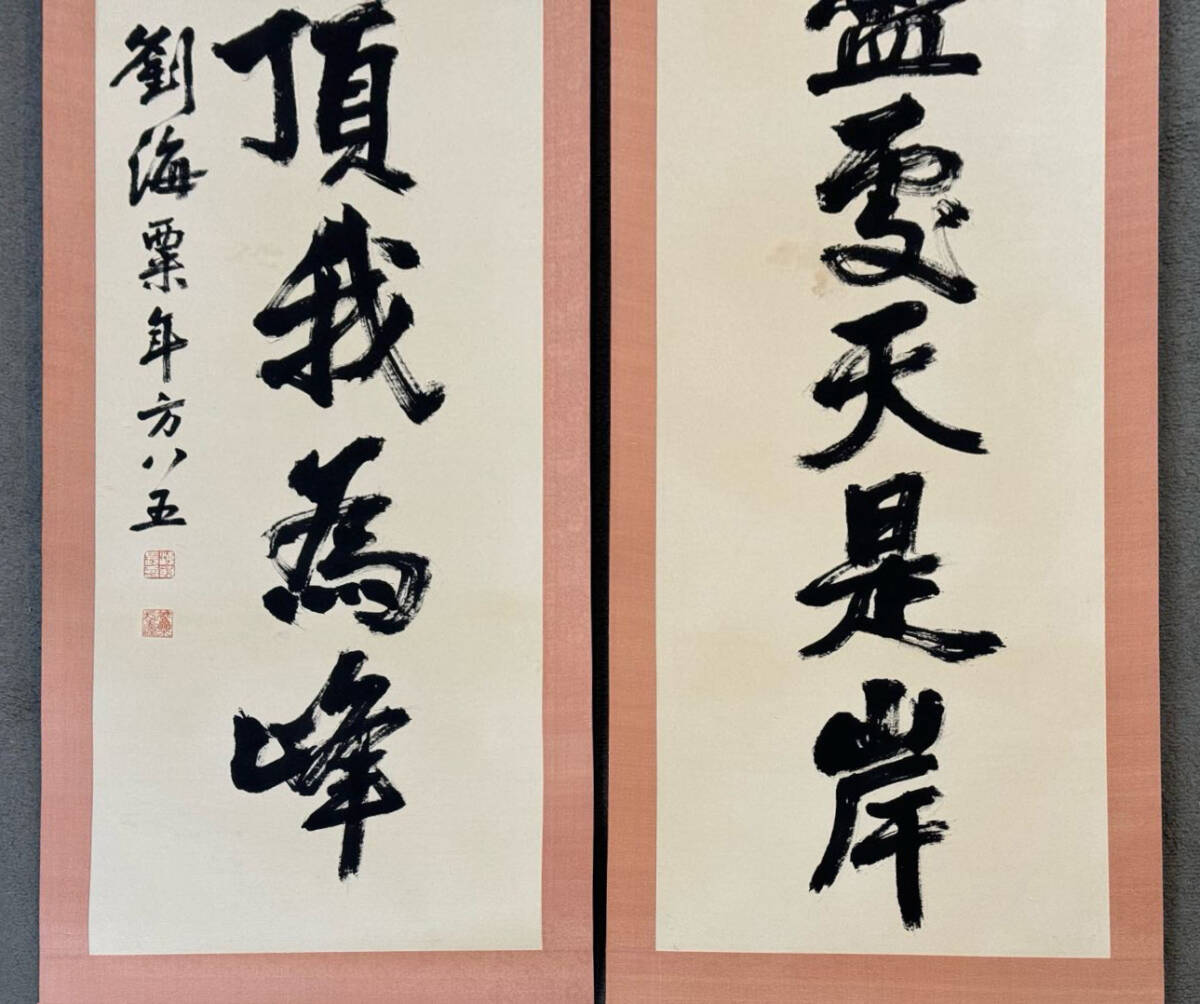 盡處天是岸
頂我為峰
劉海粟年方八五